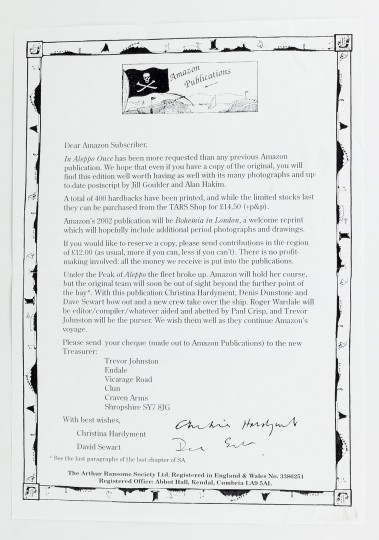 Amazon
Publications
Dear Amazon Subscriber,
In Aleppo Once has been more requested than any previous Amazon
publication. We hope that even if you have a copy of the original, you will
find this edition well worth having as well with its many photographs and up
to date postscript by Jill Goulder and Alan Hakim.
A total of 400 hardbacks have been printed, and while the limited stocks last
they can be purchased from the TARS Shop for £14.50 (+p&p).
Amazon's 2002 publication will be Bohemia in London, a welcome reprint
which will hopefully include additional period photographs and drawings.
If you would like to reserve a copy, please send contributions in the region
of £12.00 (as usual, more if you can, less if you can't). There is no profit-
making involved: all the money we receive is put into the publications.
Under the Peak of Aleppo the fleet broke up. Amazon will hold her course,
but the original team will soon be out of sight beyond the further point of
the bay*. With this publication Christina Hardyment, Denis Dunstone and
Dave Sewart bow out and a new crew take over the ship. Roger Wardale will
be editor/compiler/whatever aided and abetted by Paul Crisp, and Trevor
Johnston will be the purser. We wish them well as they continue Amazon's
voyage.
Please send your cheque (made out to Amazon Publications) to the new
Treasurer:
Trevor Johnston
Endale
Vicarage Road
Clun
Craven Arms
Shropshire SY7 8JG
With best wishes,
Christina Hardyment
Christina Hardyment
David Sewart
* See the last paragraphs of the last chapter of SA.
The Arthur Ransome Society Ltd. Registered in England & Wales No. 3386251
Registered Office: Abbot Hall, Kendal, Cumbria LA9 5AL